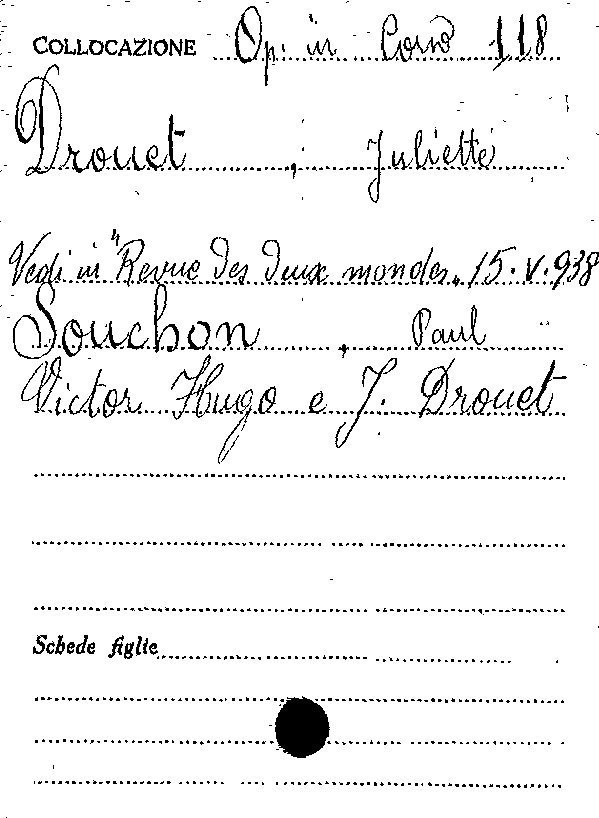 COLLOCAZIONE Op. in Corso 118
Drouet, Juliette
Vedi in "Revue des deux mondes„ 15.V.938
Souchon, Paul
Victor Hugo e J. Drouet
Schede figlie